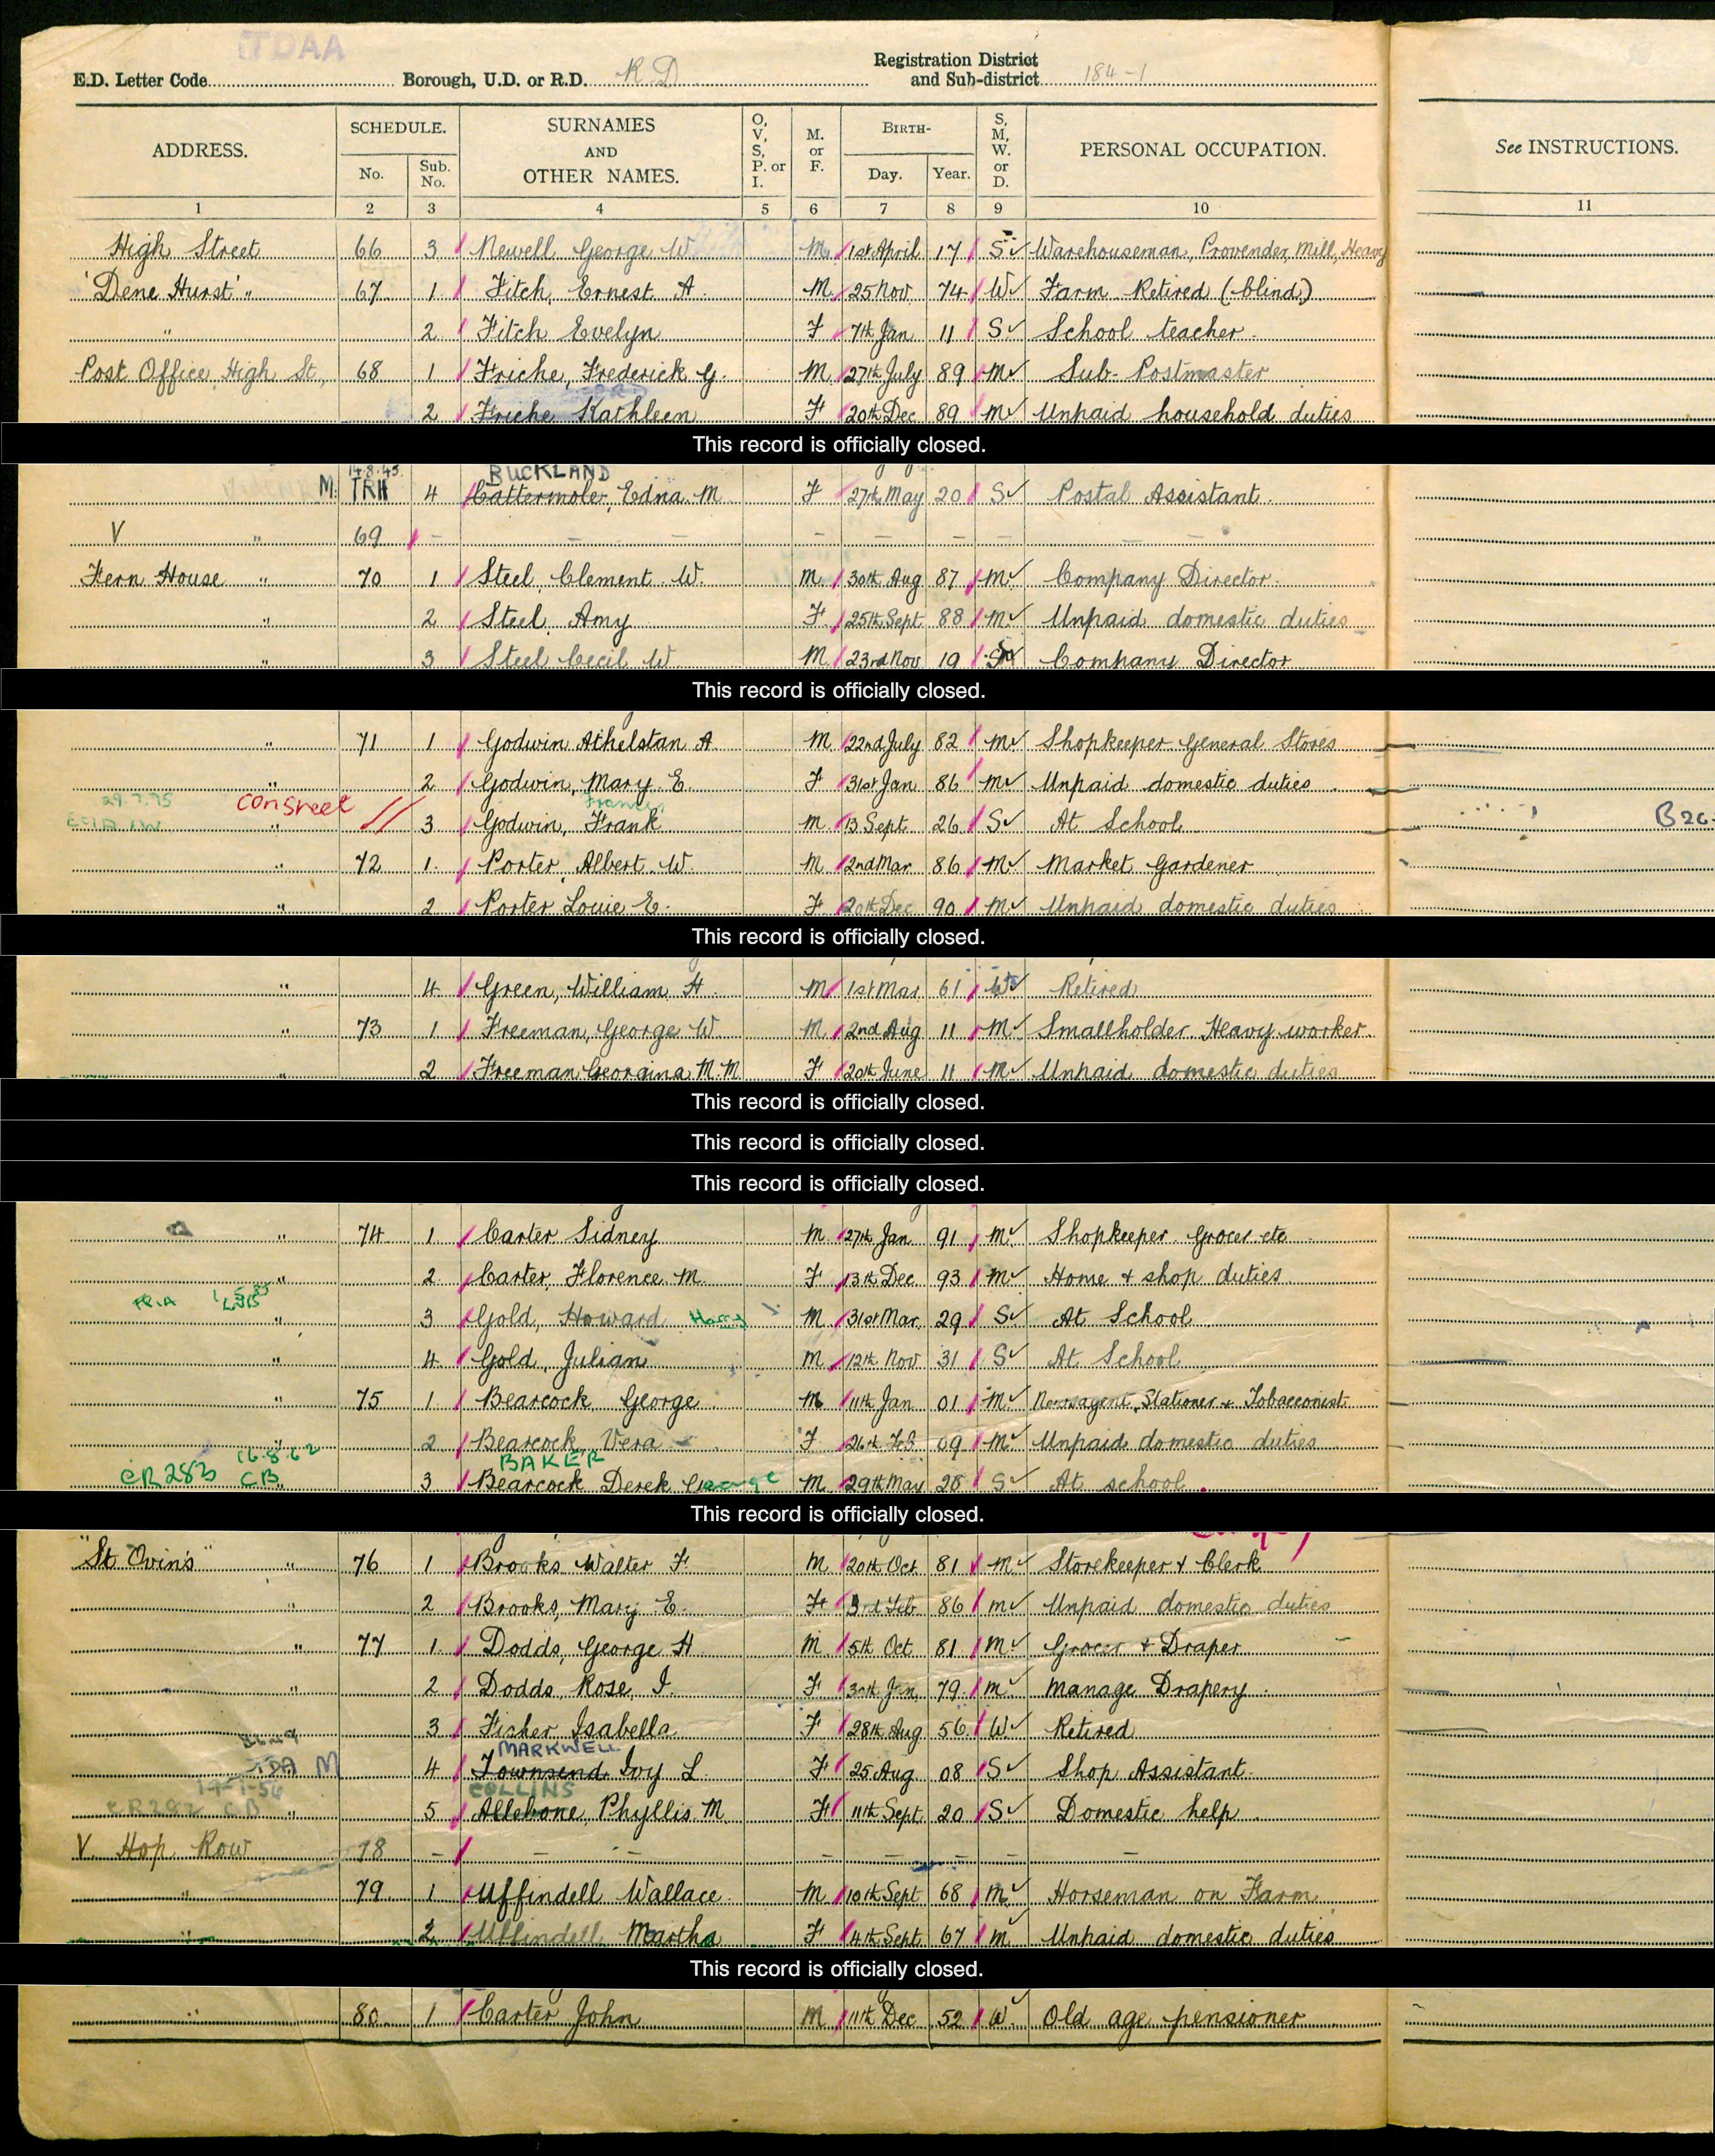 TDAA
E.D. Letter Code Borough, U.D. or R.D. R D Registration District and Sub-district 184-1
ADDRESS. SCHEDULE. No. Sub. No. SURNAMES AND OTHER NAMES. O, V, S, P. or I. M. or F. BIRTH- Day. Year. S, M, W. or D. PERSONAL OCCUPATION. See INSTRUCTIONS.
1 2 3 4 5 6 7 8 9 10 11
High Street 66 3 Newell George W M 1st April 17 S Warehouseman, Provender Mill, Heavy
'Dene Hurst' " 67 1 Fitch, Ernest A. M 25 Nov 74 W Farm Retired (blind)
" 2 Fitch Evelyn F 7th Jan 11 S School teacher
Post Office, High St., 68 1 Friche, Frederick G. M 27th July 89 M Sub-Postmaster
2 Friche Kathleen F 20th Dec 89 M Unpaid household duties
This record is officially closed.
14.8.45 BUCKLAND
M TRH 4 Cattermole, Edna M F 27th May 20 S Postal Assistant
V " 69 - - - - - - - - -
Fern House " 70 1 Steel, Clement W. M 30th Aug 87 M Company Director
" 2 Steel, Amy F 25th Sept 88 M Unpaid domestic duties
" 3 Steel Cecil W M 23rd Nov 19 S Company Director
This record is officially closed.
" 71 1 Godwin Athelstan A M 22nd July 82 M Shopkeeper General Stores
" 2 Godwin, Mary E. F 31st Jan 86 M Unpaid domestic duties
29.7.75 Consheet Francis
" 3 Godwin, Frank M 13 Sept 26 S At School B26
" 72 1. Porter, Albert W. M 2nd Mar 86 M Market Gardener
" 2 Porter Louie E. F 20th Dec 90 M Unpaid domestic duties
This record is officially closed.
" 4 Green, William H. M 1st Mar 61 W Retired
" 73 1 Freeman, George W M 2nd Aug 11 M Smallholder Heavy worker
" 2 Freeman Georgina M.M F 20th June 11 M Unpaid domestic duties
This record is officially closed.
This record is officially closed.
This record is officially closed.
" 74 1 Carter Sidney M 27th Jan 91 M Shopkeeper Grocer etc
" 2 Carter, Florence M. F 13th Dec 93 M Home + shop duties
" 3 Gold, Howard Harry M 31st Mar 29 S At School
" 4 Gold, Julian M 12th Nov 31 S At School
" 75 1 Bearcock George M 11th Jan 01 M Newsagent, Stationer + Tobacconist
" 2 Bearcock Vera F 26th Feb 09 M Unpaid domestic duties
16.8.62 BAKER
CR283 CB " 3 Bearcock Derek George M 29th May 28 S At school
This record is officially closed.
"St Ovin's" " 76 1 Brooks Walter F. M 20th Oct 81 M Storekeeper & Clerk
" 2 Brooks, Mary E. F 3rd Feb 86 M Unpaid domestic duties
" 77 1 Dodds, George H M 5th Oct 81 M Grocer + Draper
" 2 Dodds, Rose, I. F 30th Jan 79 M Manage Drapery
" 3 Fisher Isabella F 28th Aug 56 W Retired
MARKWELL
TDA M 4 Townsend Ivy L F 25 Aug 08 S Shop Assistant
COLLINS
CR282 CB " 5 Allebone, Phyllis M F 11th Sept 20 S Domestic help
V. Hop Row 78 - - - - - - - -
" 79 1 Uffindell Wallace M 10th Sept 68 M Horseman on Farm
2 Uffindell Martha F 4th Sept 67 M Unpaid domestic duties
This record is officially closed.
" 80 1 Carter John M 11th Dec 52 W Old age pensioner